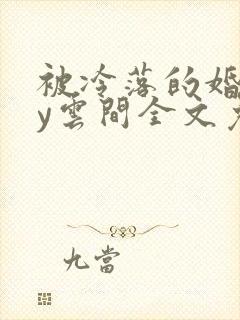 被冷落的婚
y雲間全文
九當